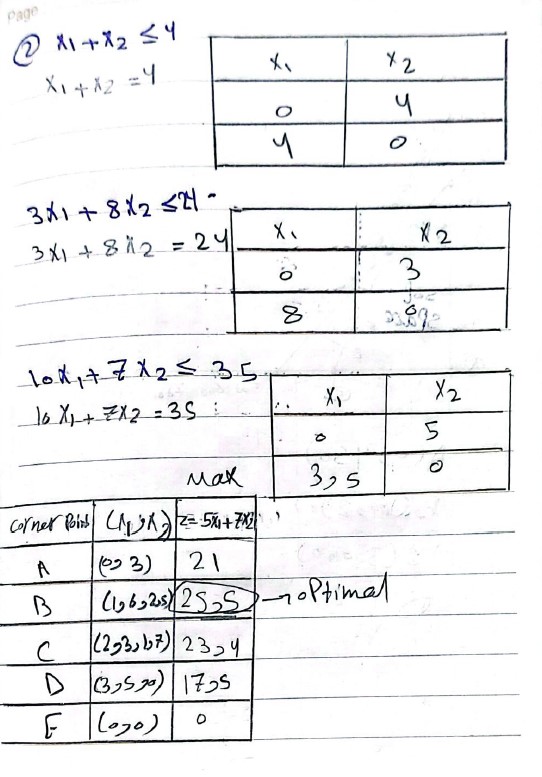 Page
② x₁ + x₂ ≤ 4
x₁ + x₂ = 4
x₁ x₂
0 4
4 0
3x₁ + 8x₂ ≤ 24
3x₁ + 8x₂ = 24
x₁ x₂
0 3
8 0
10x₁ + 7x₂ ≤ 35
10x₁ + 7x₂ = 35
x₁ x₂
0 5
3,5 0
Max
Corner Point (x₁,x₂) z=5x₁+7x₂
A (0,3) 21
B (1,6,2,5) 25,5 → optimal
C (2,3,1,7) 23,4
D (3,5,0) 17,5
E (0,0) 0